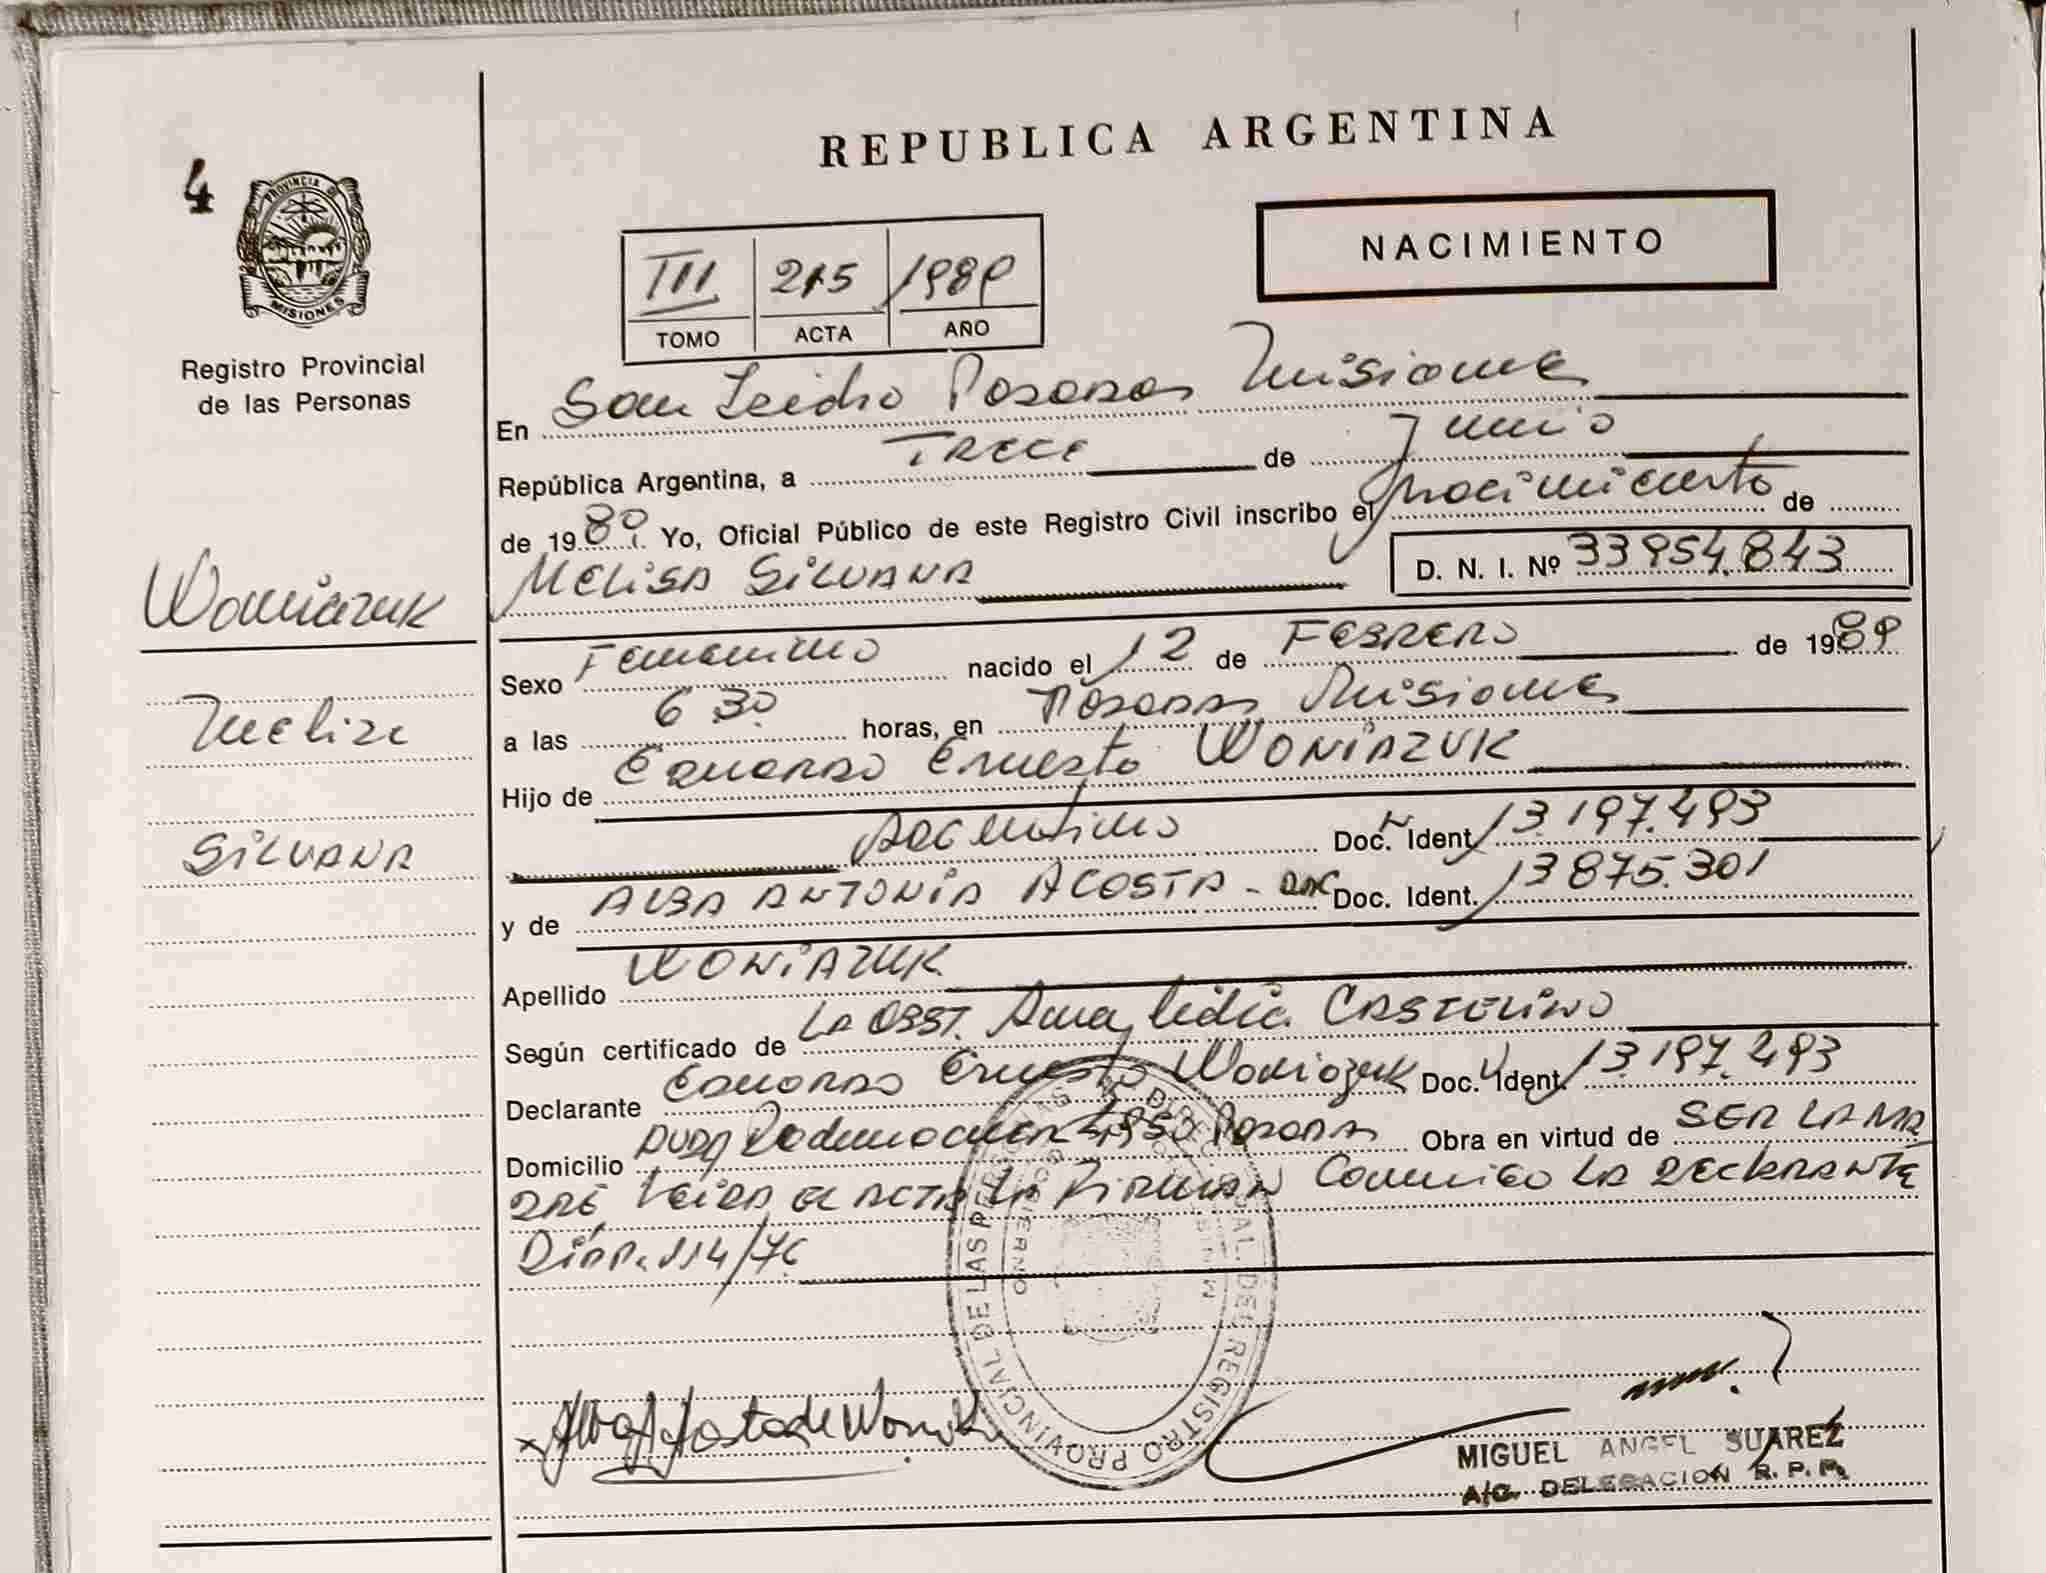 REPUBLICA ARGENTINA
4
PROVINCIA DE
MISIONES
Registro Provincial
de las Personas
III 215 1989
TOMO ACTA AÑO
NACIMIENTO
En San Isidro Posadas Misiones
República Argentina, a TRECE de Junio
de 1989. Yo, Oficial Público de este Registro Civil inscribo el nacimiento de
MELISA SILVANA D. N. I. Nº 33954.843
Woniazuk
Melisa
SILVANA
Sexo Femenino nacido el 12 de FEBRERO de 1989
a las 6 30 horas, en Posadas Misiones
Hijo de Eduardo Ernesto WONIAZUK
Argentino Doc. Ident. 13.197.493
y de ALBA ANTONIA ACOSTA - Doc. Ident. 13875.301
Apellido WONIAZUK
Según certificado de LA OBST. Ana Lidia CASTELINO
Declarante Eduardo Ernesto Woniazuk Doc. Ident. 13.197.493
Domicilio 4950 Posadas Obra en virtud de SER LA MA
DRE, Leida el ACTA LA FIRMAN Conmigo LA DECLARANTE
Disp. 114/76
REGISTRO PROVINCIAL DE LAS PERSONAS
Alba A Acosta de Woniazuk
MIGUEL ANGEL SUAREZ
A/C. DELEGACION R. P. P.